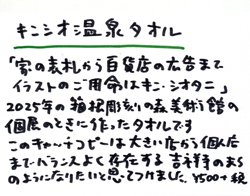 キンシオ温泉タオル
「家の表札から百貨店の広告まで
イラストのご用命はキン・シオタニ」
2025年の箱根彫刻の森美術館の
個展のときに作ったタオルです
このキャッチコピーは大きい店から個人店
までバランスよく存在する吉祥寺のまち
のようになりたいと思ってつけました。¥500+税